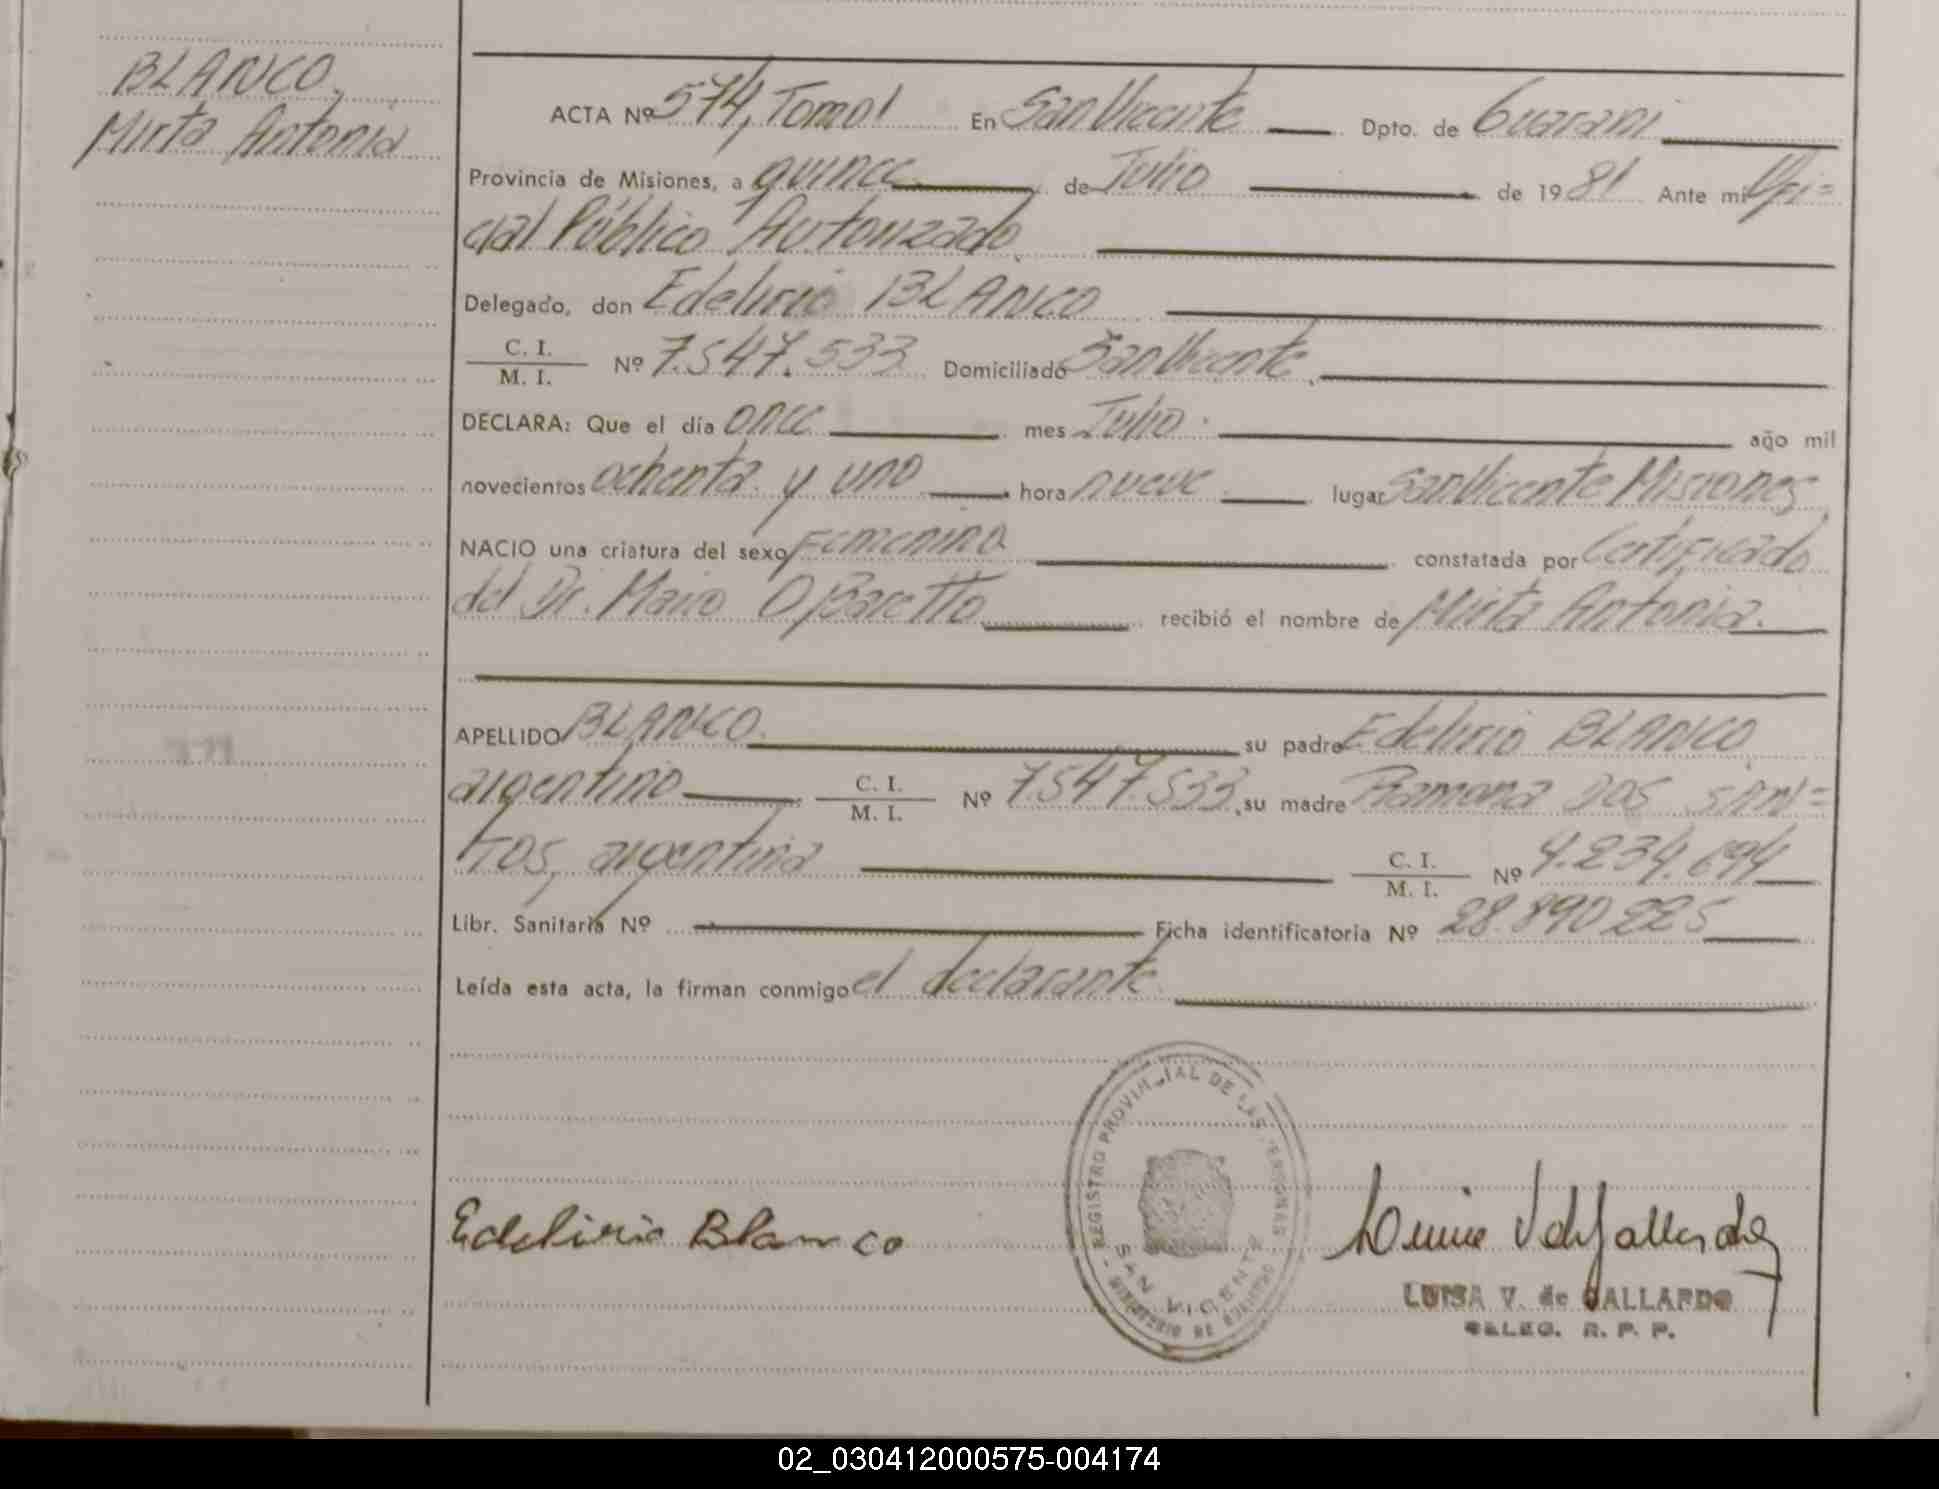 BLANCO,
Mirta Antonia
ACTA Nº 574, Tomo I En San Vicente Dpto. de Guarani
Provincia de Misiones, a quince de Julio de 1981 Ante mi Ofi=
cial Público Autorizado
Delegado, don Edelirio BLANCO
C. I.
M. I. Nº 7.547.533 Domiciliado San Vicente
DECLARA: Que el día once mes Julio año mil
novecientos ochenta y uno hora nueve lugar San Vicente Misiones
NACIO una criatura del sexo Femenino constatada por Certificado
del Dr. Mario recibió el nombre de Mirta Antonia.
APELLIDO BLANCO. su padre Edelirio BLANCO
argentino C. I.
M. I. Nº 7.547.533, su madre Ramona DOS SAN=
TOS, argentina C. I.
M. I. Nº 4.234.694
Libr. Sanitaria Nº Ficha identificatoria Nº 28.890.225
Leída esta acta, la firman conmigo el declarante
REGISTRO PROVINCIAL DE LAS PERSONAS
SAN VICENTE
MINISTERIO DE GOBIERNO
Edelirio Blanco
LUISA V. de GALLARDO
DELEG. R. P. P.
02_030412000575-004174